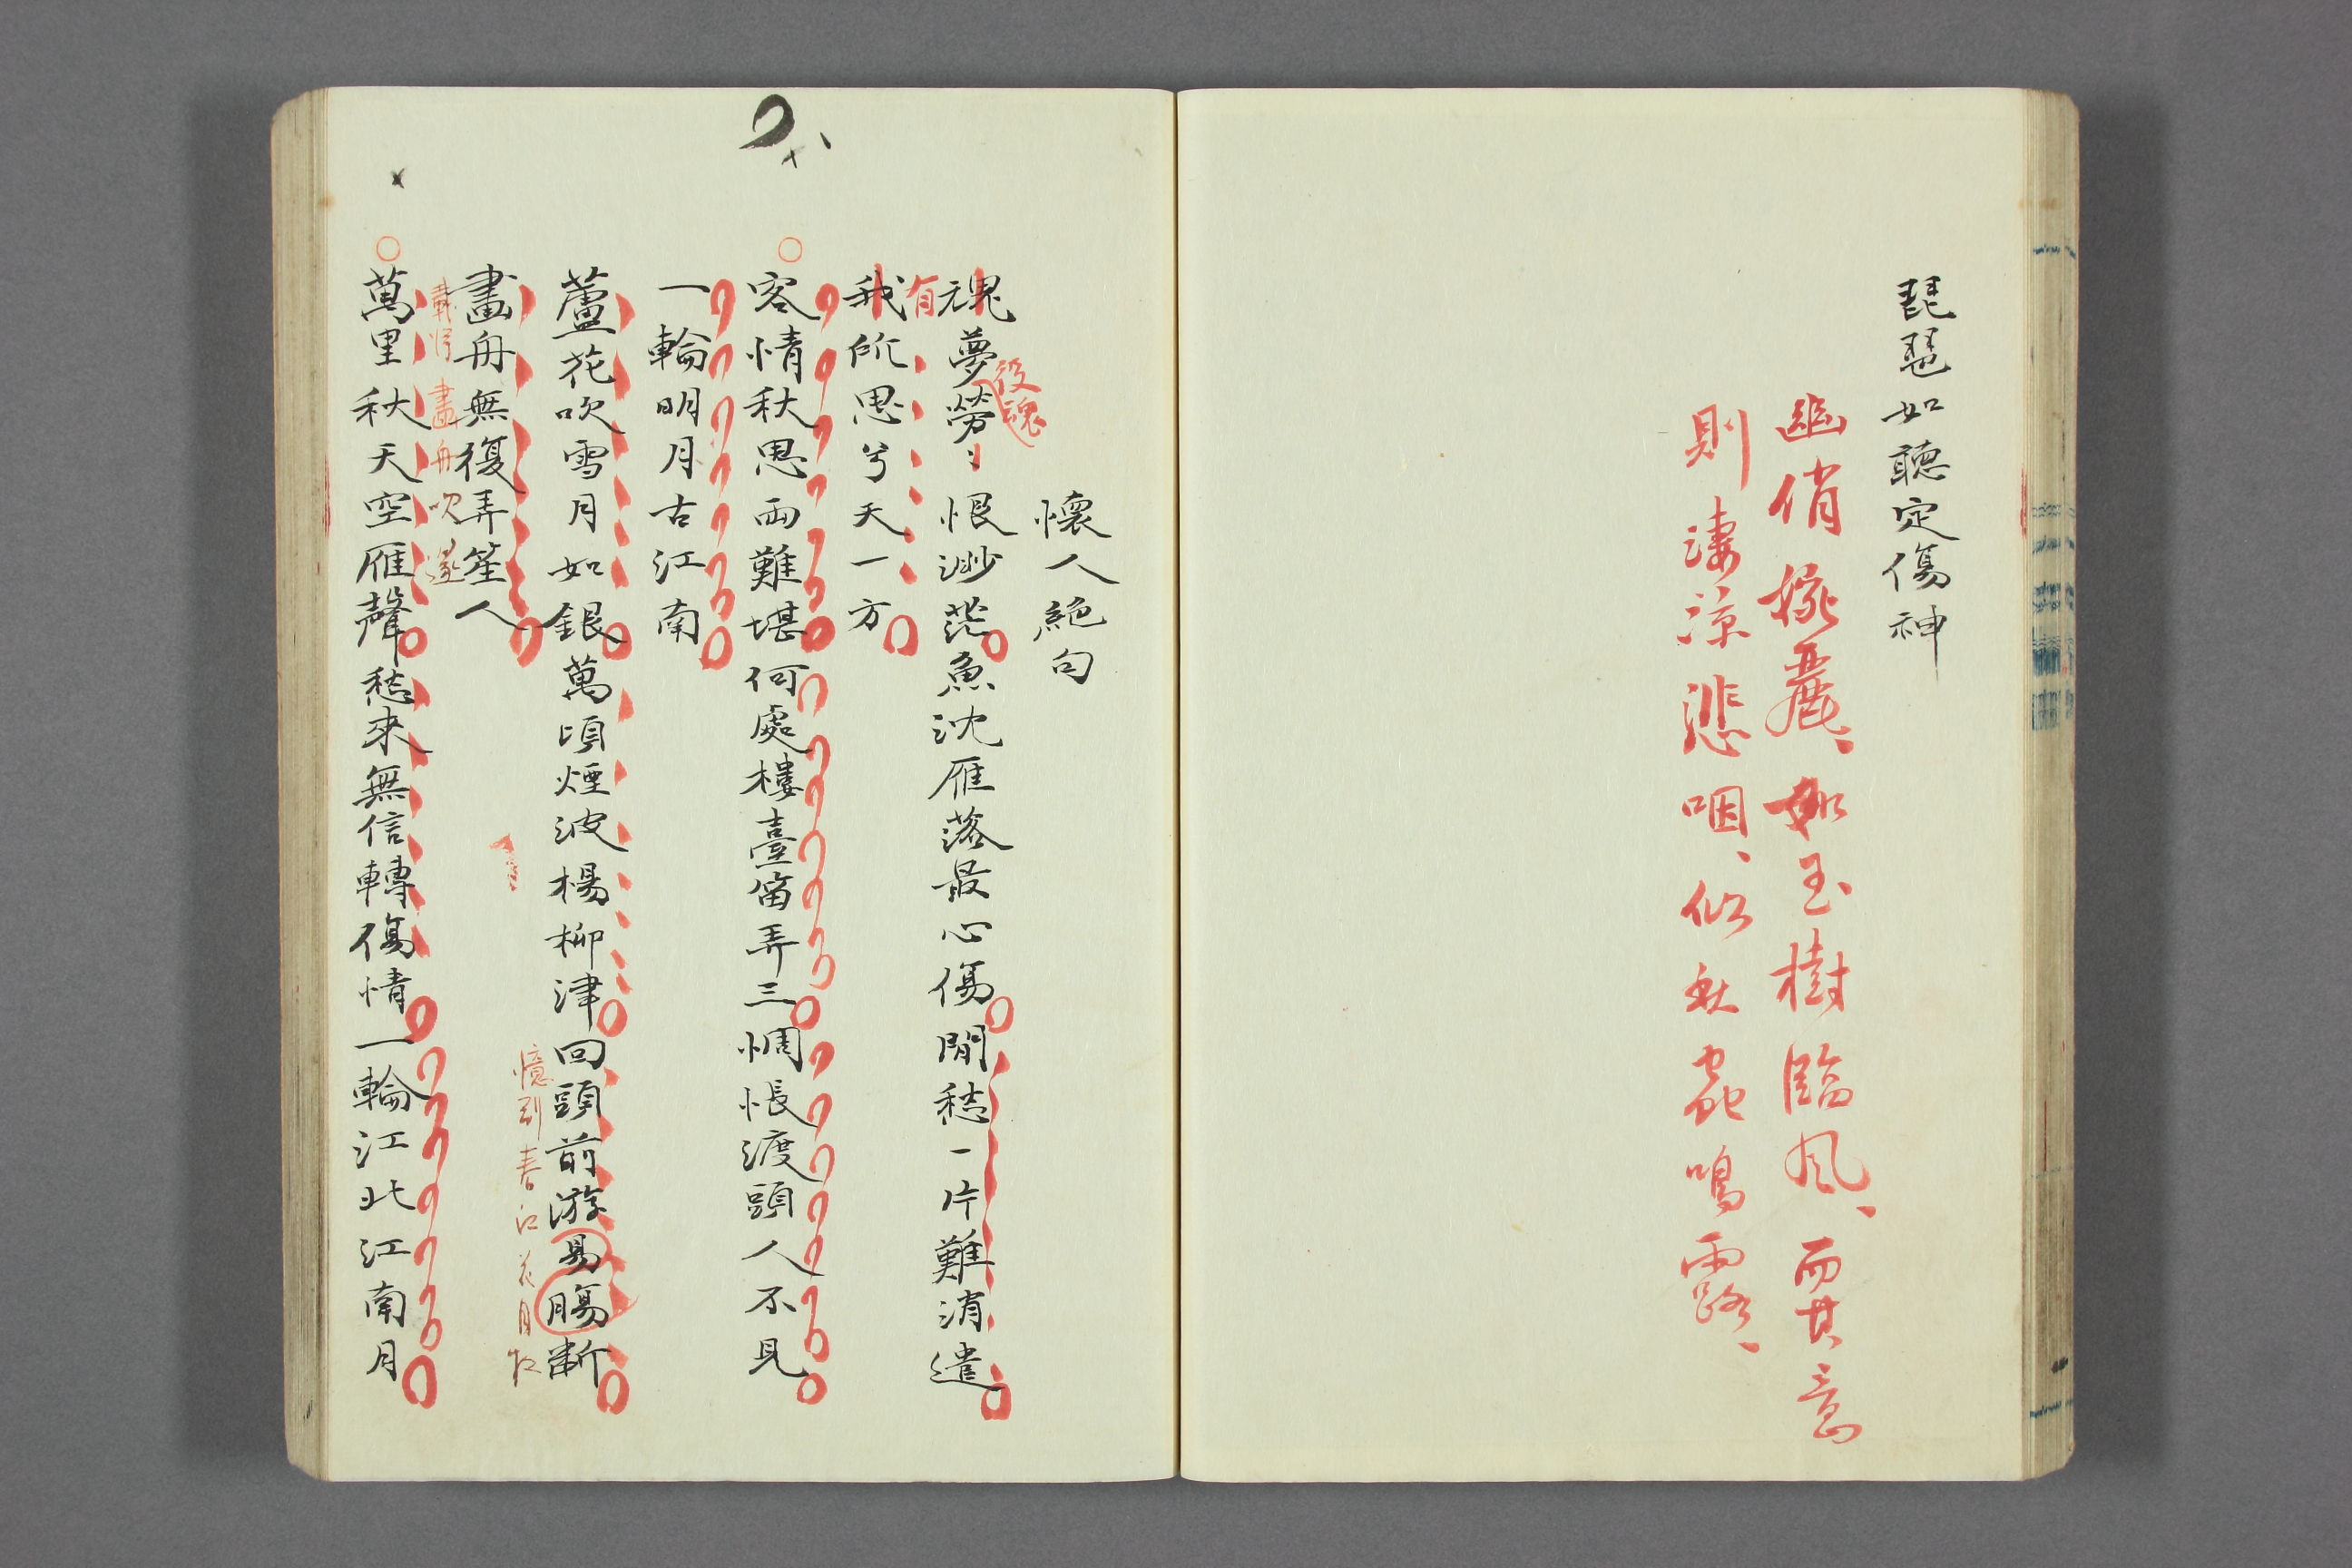 琵琶如聽定傷神
幽俏婉麗、如玉樹臨风、而其意
則淒涼悲咽、似秋蟲鳴露、
懷人絕句
魂夢勞〻恨渺茫魚沈雁落最心傷閒愁一片難消遣
役魂
有
我所思兮天一方
客情秋思兩難堪何處樓臺笛弄三惆悵渡頭人不見
一輪明月古江南
蘆花吹雪月如銀萬頃煙波楊柳津回頭前游易腸斷
憶到春江花月夜
畫舟無復弄笙人
載將畫舟吹遂
萬里秋天空雁聲愁來無信轉傷情一輪江北江南月